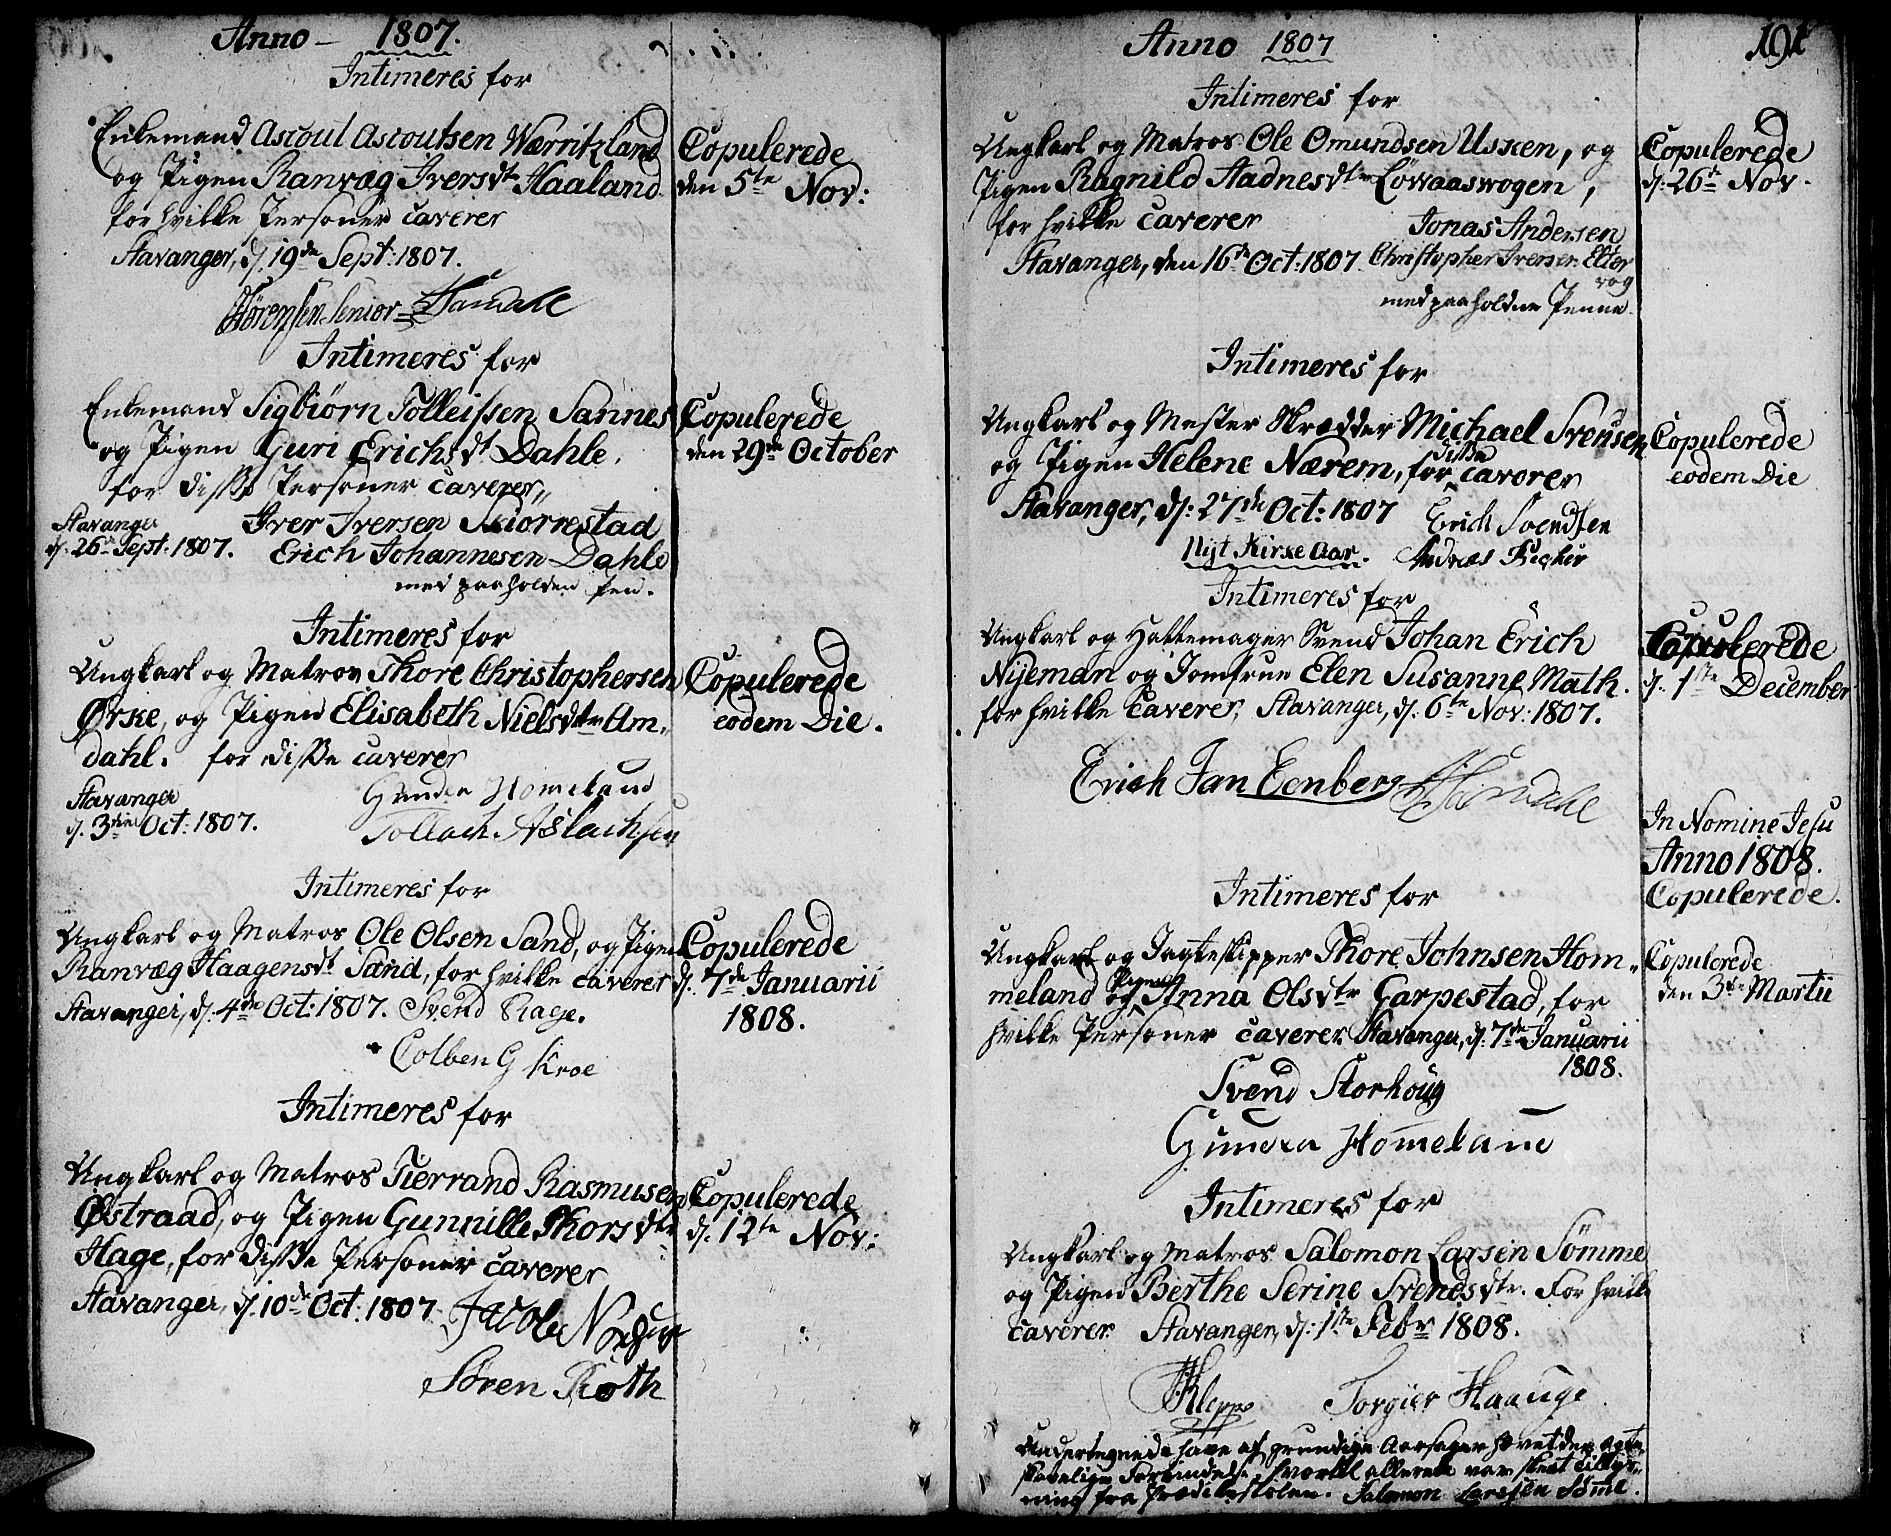 Anno - 1807.
Intimeres for
Enkemand Ascoul Ascoutsen Wærritzland
og Pigen Ranvæg Iversdtr Haaland
for hvilke Personer caverer
Stavanger, d. 19de Sept: 1807.
Sörensen Senior
Copulerede
den 5te Nov:
Intimeres for
Enkemand Sigbiörn Tolleifssen Sannes
og Pigen Guri Erichsdt Dahle.
for disse Personer caverer,,
Stavanger
d. 26de Sept: 1807.
Iver Iversen Skiorrestad
Erich Johannesen Dahle
med paaholden Pen.
Copulerede
den 29de October
Intimeres for
Ungkarl og Matros Thore Christophersen
Ørke, og Pigen Elisabeth Nielsdtr Am,
dahl. for disse caverer
Stavanger
d. 3die Oct: 1807.
Gunder Homeland
Tollach Aslachsen
Copulerede
eodem Die.
Intimeres for
Ungkarl og Matros Ole Olsen Sand, og Pigen
Ranvæg Haagensdt Sand, for hvilke caverer
Stavanger, d. 4de Oct: 1807. Svend
Colben G Kroe
Copulerede
d. 7de Januarii
1808.
Intimeres for
Ungkarl og Matros Tierrand Rasmusen
Østraad, og Pigen Gunnille Thorsdtr
Hage, for disse Personer caverer
Stavanger, d. 10de Oct: 1807
Jacob
Sören Roth
Copulerede
d. 12te Nov:
Anno 1807
191
Intimeres for
Ungkarl og Matros Ole Omundsen Usken, og
Pigen Ragnild Hadnesdtr Lövvaaswogen,
for hvilke caverer
Stavanger, den 16de Oct: 1807.
Jonas Andersen
Christopher Iversen Elter
vog
med paaholden Penne.
Copulerede
d: 26de Nov.
Intimeres for
Ungkarl og Mester Skrædder Michael Svensen
og Pigen Helene Nærem, for disse caverer
Stavanger, d: 27de Oct: 1807
Erich Svendsen
Andreas Fischer
Nyt Kirke Aar.
Copulerede
eodem Die
Intimeres for
Ungkarl og Hattemager Svend Johan Erich
Nijeman og Jomfrue Elen Susanne Math.
for hvilke caverer, Stavanger, d: 6te Nov: 1807.
Erich Jan Eenberg
Copulerede
d: 1ste December
In Nomine Jesu
Anno 1808.
Copulerede.
Intimeres for
Ungkarl og Jagteskipper Thore Johnsen Hom,,
meland og Pigen Anna Olsdtr Garpestad, for
hvilke Personer caverer Stavanger, d. 7de Januarii
1808.
Svend Storhoug
Gunder Homeland
Copulerede
den 3die Martii
Intimeres for
Ungkarl og Matros Salomon Larsen Sömme
og Pigen Berthe Serine Svendsdtr. For hvilke
caverer Stavanger, d: 1ste Febr 1808.
Kleppe Torgier Haauge
Undertegnede have af grundige Aarsager hævet den ægte,
skabelige Forbindelse, hvortil allerede var skeet Tillys,,
ning fra Prædikestolen. Salomon Larssen Sömme.